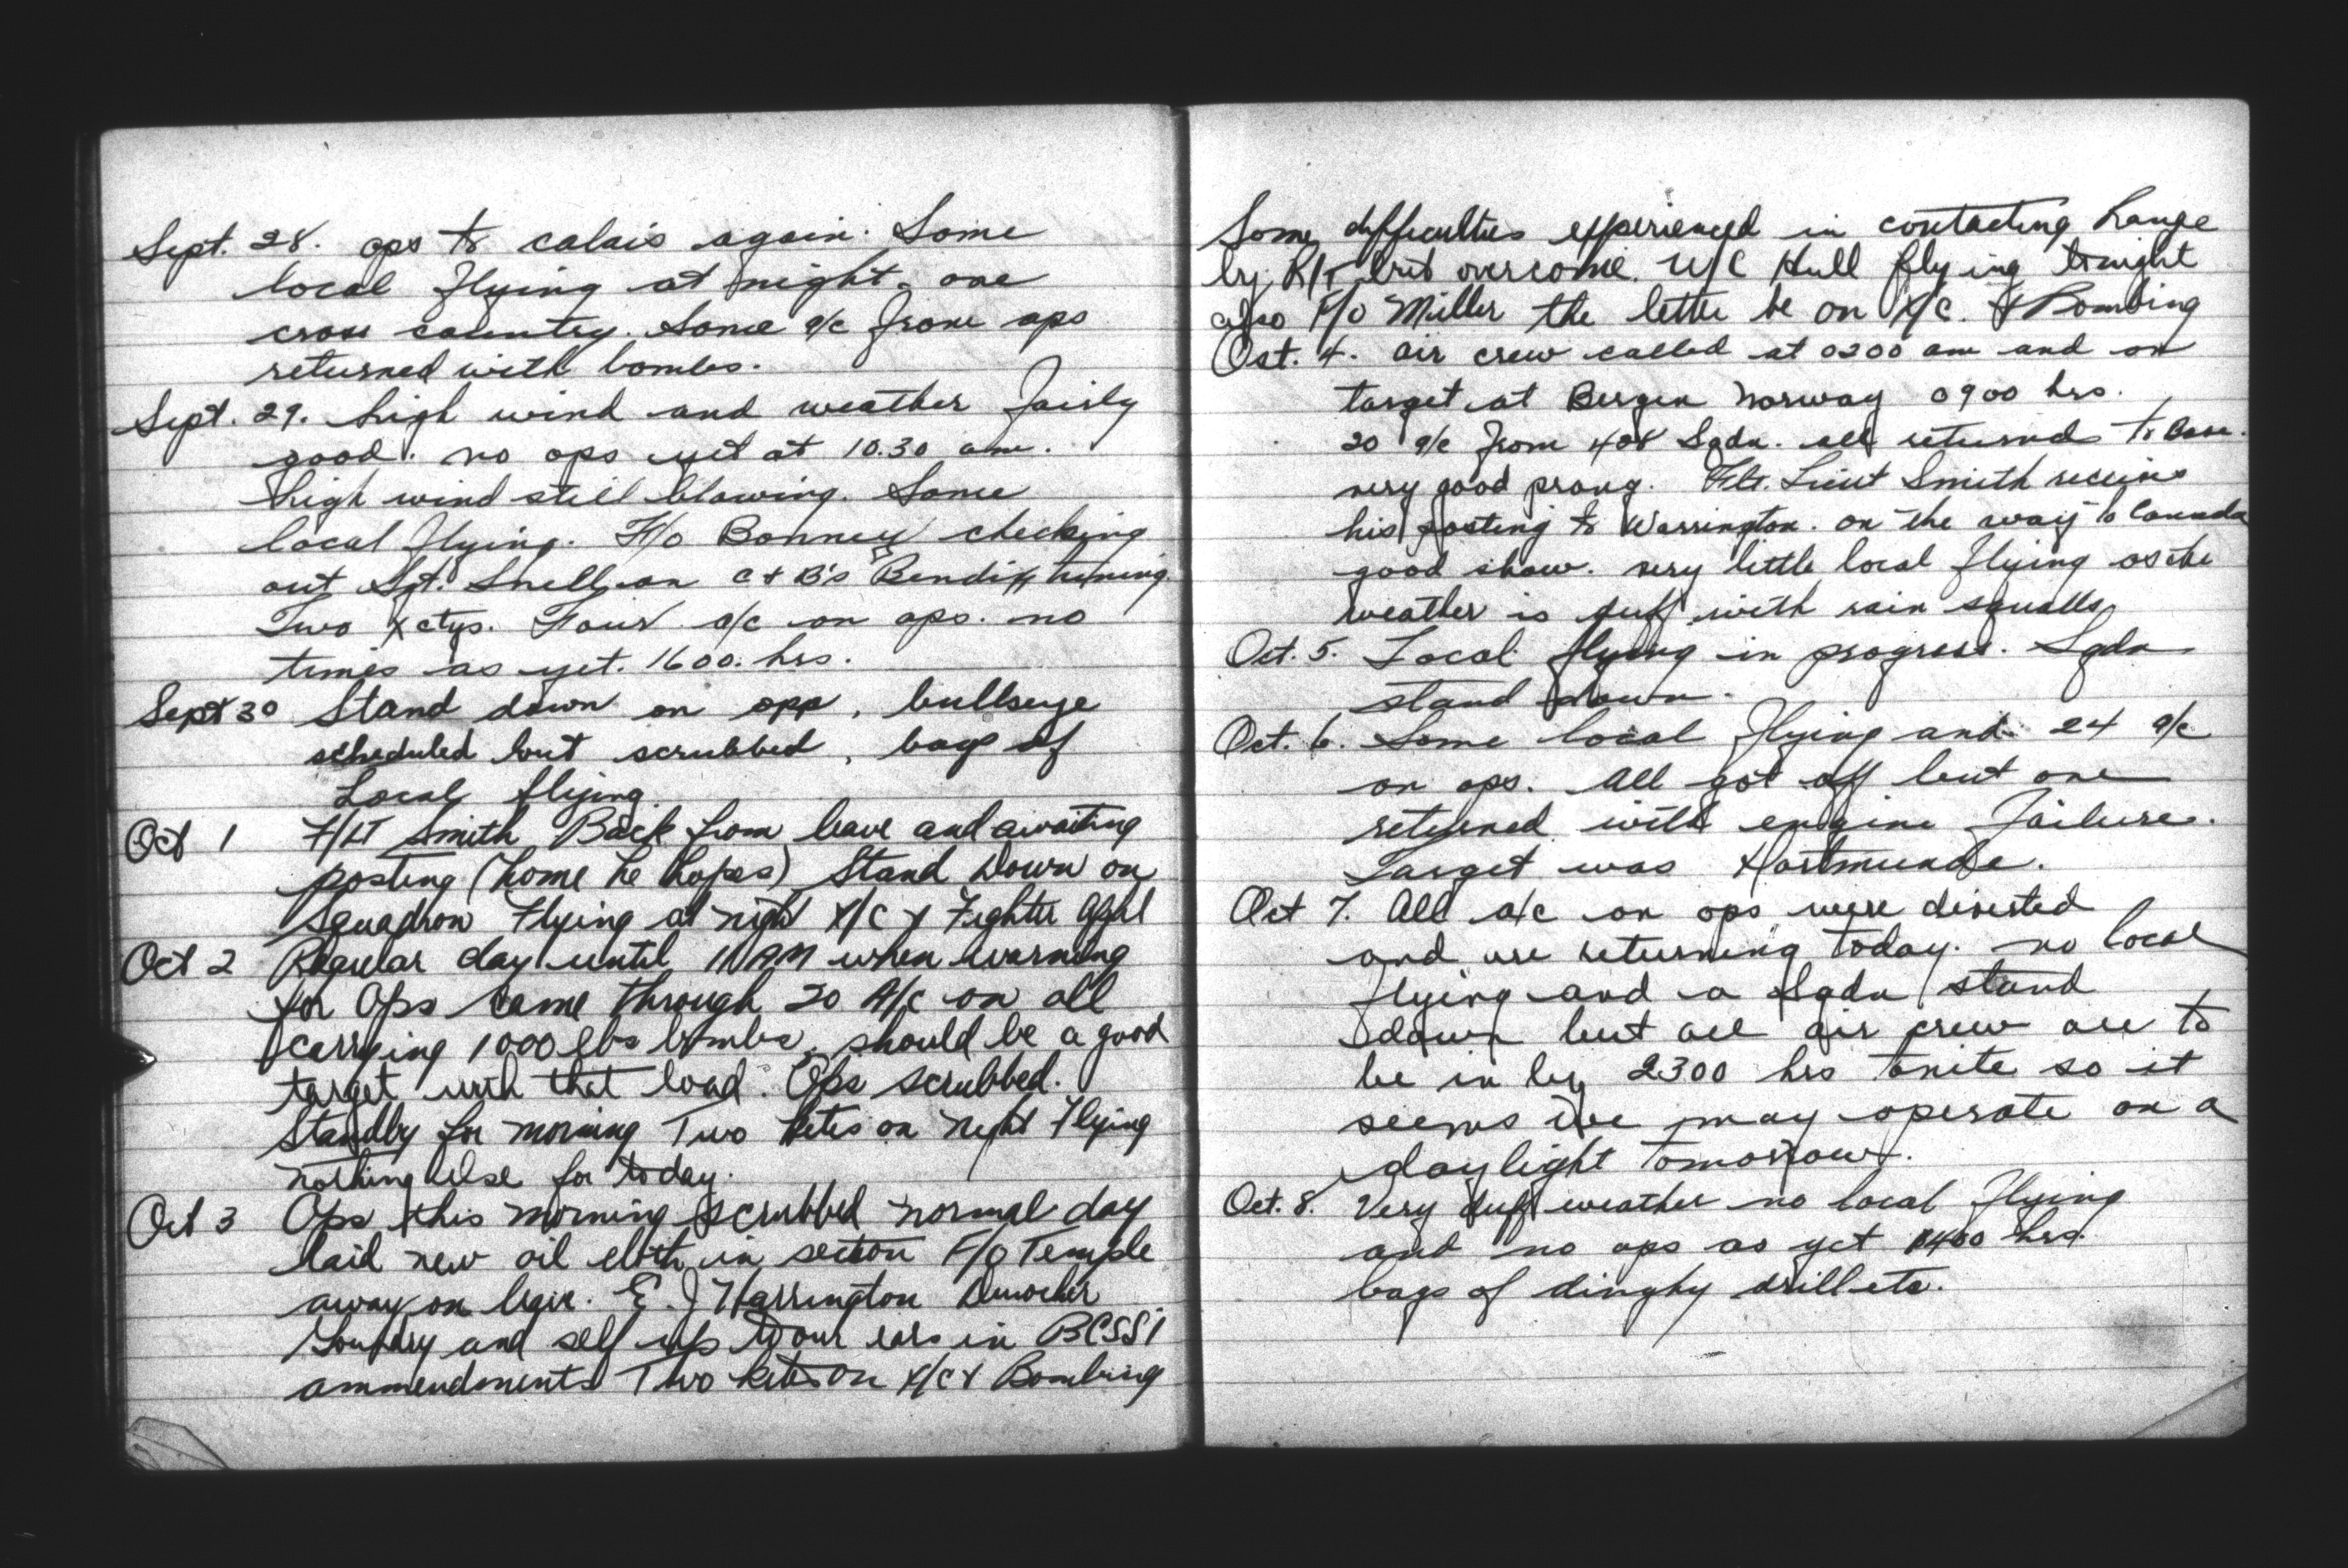 Sept. 28. ops to calais again. Some
local flying at night. one
cross country. Some a/c from ops
returned with bombs.
Sept. 29. high wind and weather fairly
good. no ops yet at 10.30 am.
high wind still blowing. Some
local flying. F/o Bonney checking
out Sgt. Snell on C + B's Bendix tuning.
Two xctys. Four a/c on ops. no
times as yet. 1600. hrs.
Sept 30 Stand down on opp, bullseye
scheduled but scrubbed, bags of
Local flying.
Oct 1 F/LT Smith Back from leave and awaiting
posting (home he hopes) Stand Down on
Squadron Flying at night X/C + Fighter Affil
Oct 2 Regular day until 11 AM when warning
for Ops came through 20 A/c on all
carrying 1000 lbs bombs, should be a good
target with that load. Ops scrubbed.
Standby for morning Two kites on night Flying
nothing else for today.
Oct 3 Ops this morning scrubbed normal day
laid new oil cloth in section F/O Temple
away on leave. E. J Harrington
and self up to our ears in BCSSI
ammendments Two kites on X/C + Bombing
Some difficulties experienced in contacting Range
by R/T but overcome. W/C Hull flying tonight
also F/O Miller the latter be on X/C. + Bombing
Oct. 4. air crew called at 0200 am and on
target at Bergen Norway 0900 hrs.
20 a/c from 408 Sqdn. all returned to Base.
very good prang. Flt. Lieut Smith receives
his posting to Warrington. on the way to Canada
good show. very little local flying as the
weather is duff with rain squalls
Oct. 5. Local flying in progress. Sqdn
stand down.
Oct. 6. Some local flying and 24 a/c
on ops. All got off but one
returned with engine failure.
Target was
Oct 7. All a/c on ops were diverted
and are returning today. no local
flying and a Sqdn stand
down but all air crew are to
be in by 2300 hrs tonite so it
seems we may operate on a
daylight tomorrow.
Oct. 8. Very duff weather no local flying
and no ops as yet 1400 hrs.
bags of dinghy drill etc.